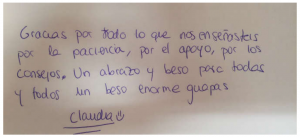 Gracias por todo lo que nos enseñosteis
por la paciencia, por el apoyo, por los
consejos. Un abrazo y beso para todas
y todos un beso enorme guapas
Claudia